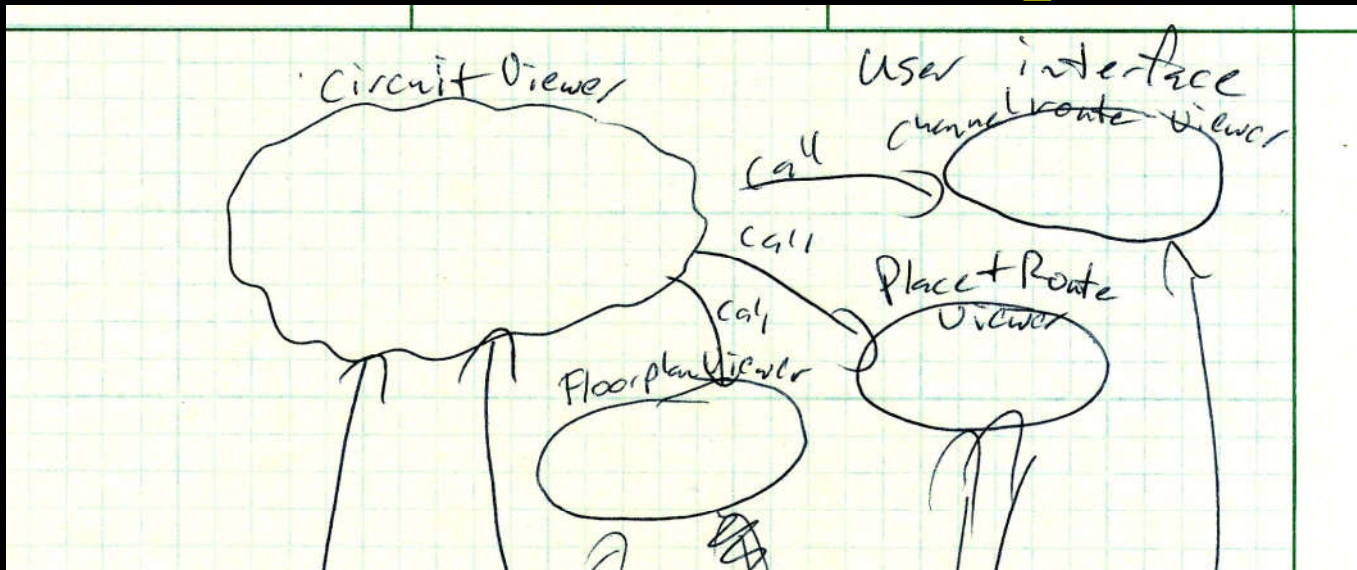 Circuit Viewer
User interface
Channel route viewer
call
call
Place + Route
Viewer
call
Floorplan Viewer